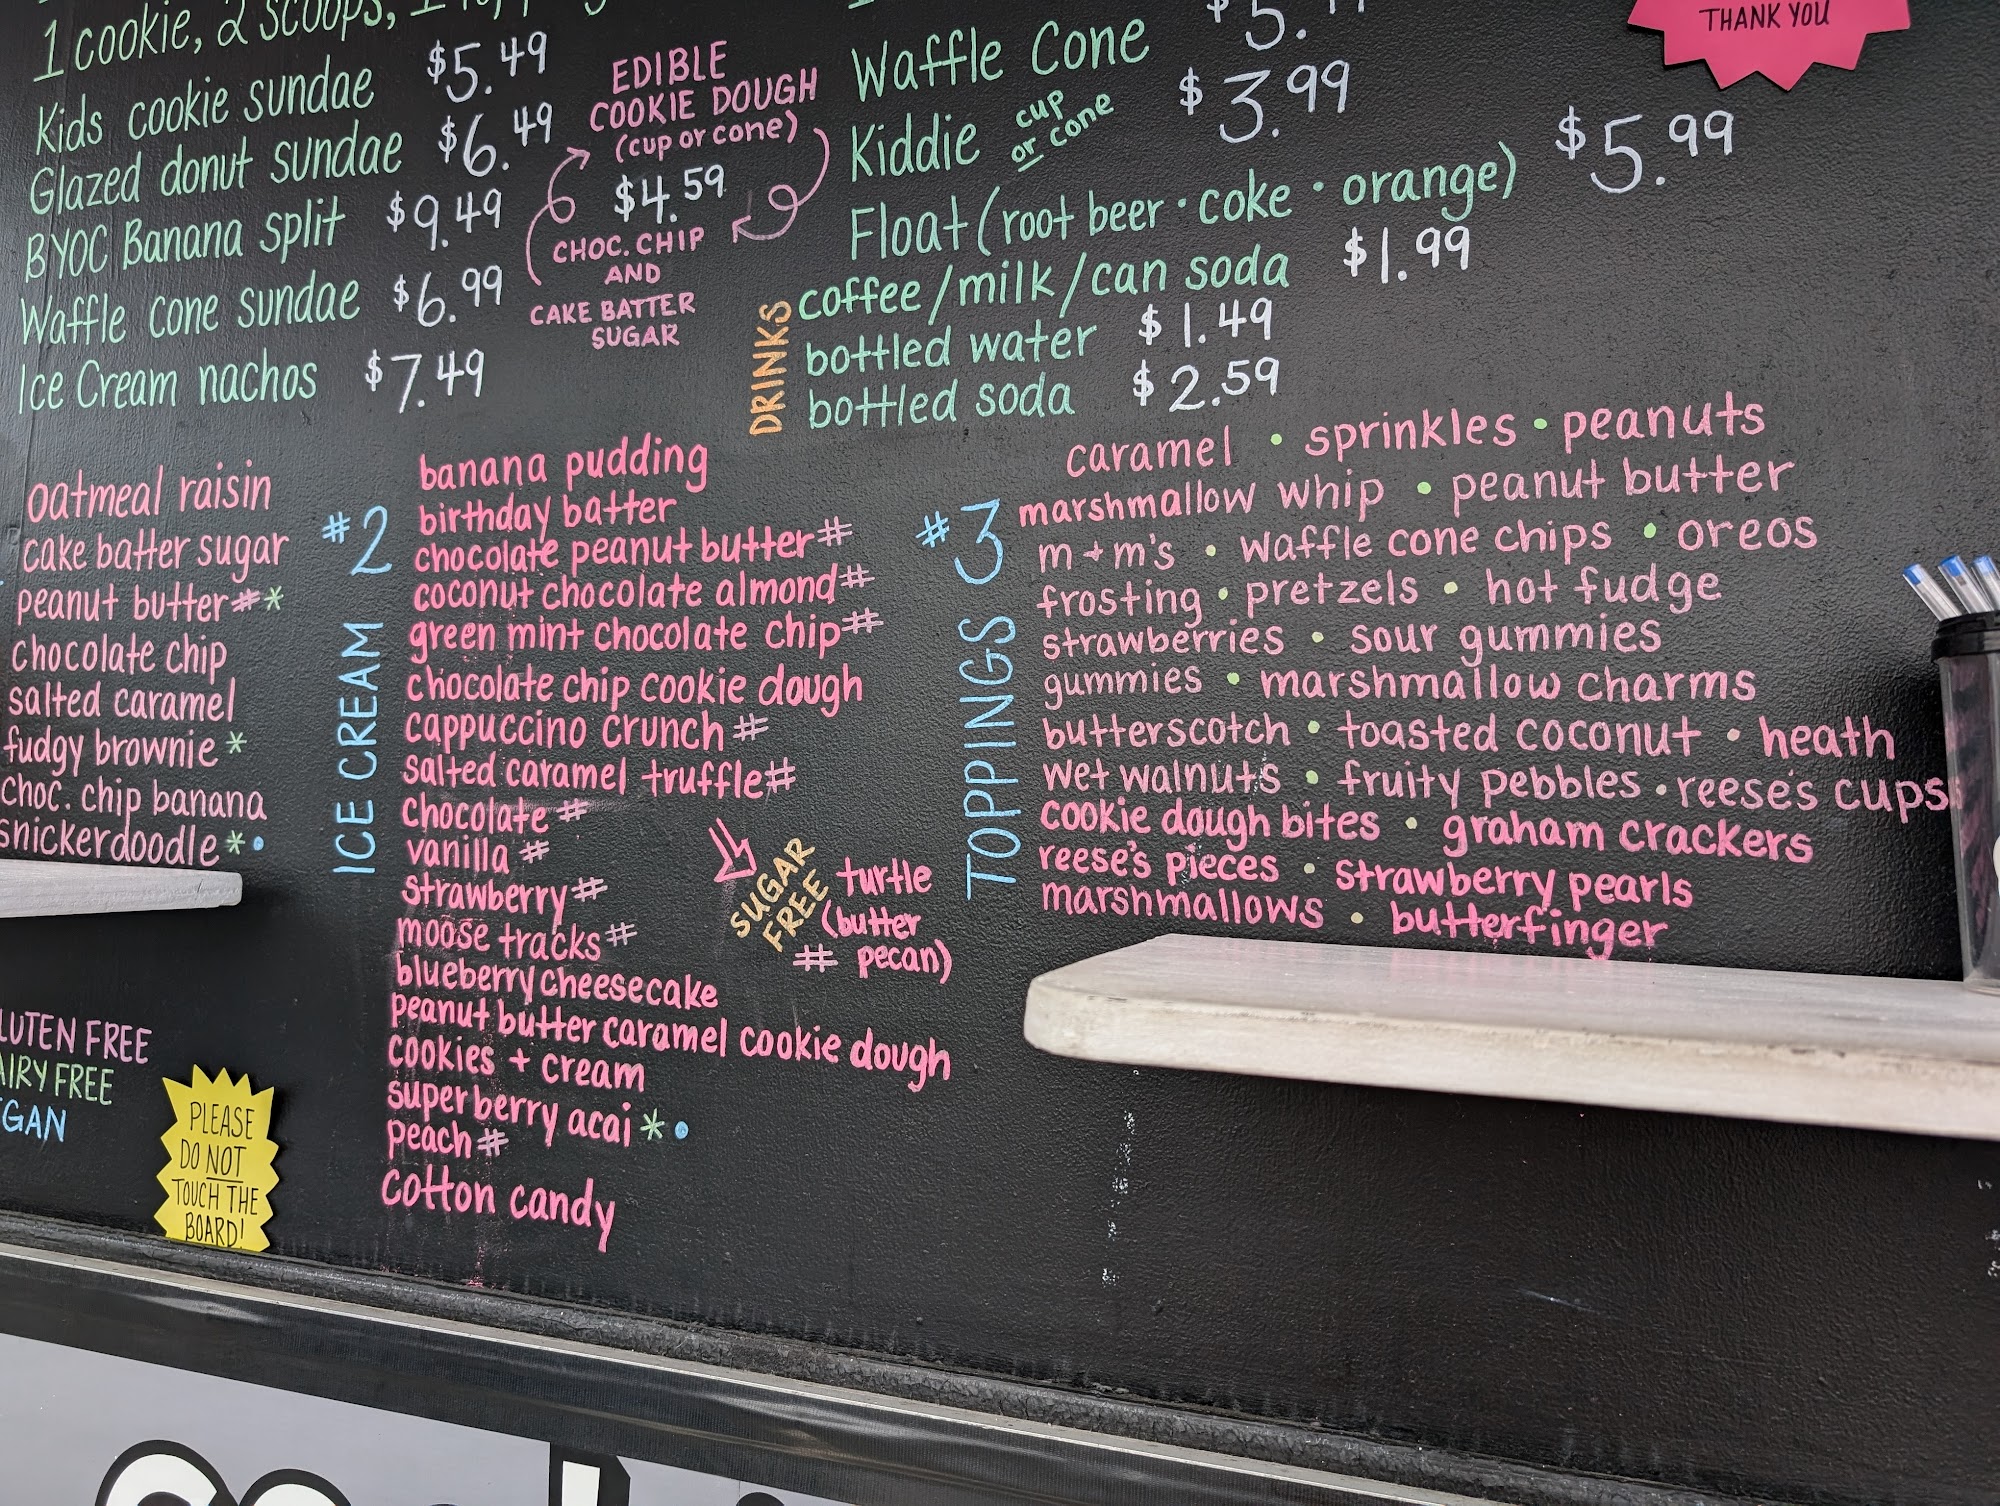 1 cookie, 2 scoops, 1
Kids cookie sundae $5.49
Glazed donut sundae $6.49
BYOC Banana split $9.49
Waffle cone sundae $6.99
Ice Cream nachos $7.49
EDIBLE
COOKIE DOUGH
(cup or cone)
$4.59
CHOC. CHIP
AND
CAKE BATTER
SUGAR
Waffle Cone
Kiddie cup or cone $3.99
Float (root beer · coke · orange) $5.99
DRINKS
coffee/milk/can soda $1.99
bottled water $1.49
bottled soda $2.59
THANK YOU
oatmeal raisin
cake batter sugar
peanut butter#*
chocolate chip
salted caramel
fudgy brownie *
choc. chip banana
snickerdoodle *•
#2
ICE CREAM
banana pudding
birthday batter
chocolate peanut butter#
coconut chocolate almond#
green mint chocolate chip#
chocolate chip cookie dough
cappuccino crunch #
salted caramel truffle#
chocolate #
vanilla #
strawberry #
moose tracks #
blueberry cheesecake
peanut butter caramel cookie dough
cookies + cream
superberry acai *•
peach #
cotton candy
SUGAR
FREE
turtle
(butter
# pecan)
#3
TOPPINGS
caramel • sprinkles • peanuts
marshmallow whip • peanut butter
m + m's • waffle cone chips • oreos
frosting • pretzels • hot fudge
strawberries • sour gummies
gummies • marshmallow charms
butterscotch • toasted coconut • heath
wet walnuts • fruity pebbles • reese's cups
cookie dough bites • graham crackers
reese's pieces • strawberry pearls
marshmallows • butterfinger
LUTEN FREE
AIRY FREE
GAN
PLEASE
DO NOT
TOUCH THE
BOARD!